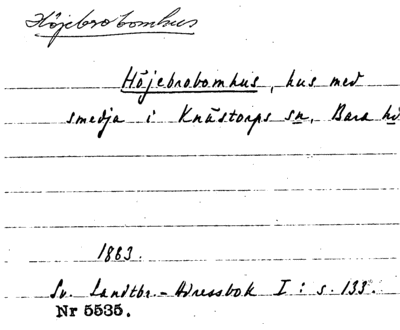 Höjebrobomhus
Höjebrobomhus, hus med
smedja i Knästorps sn, Bara hd
1883.
Sv. Landtbr.-Adressbok I: s. 133.
Nr 5535.